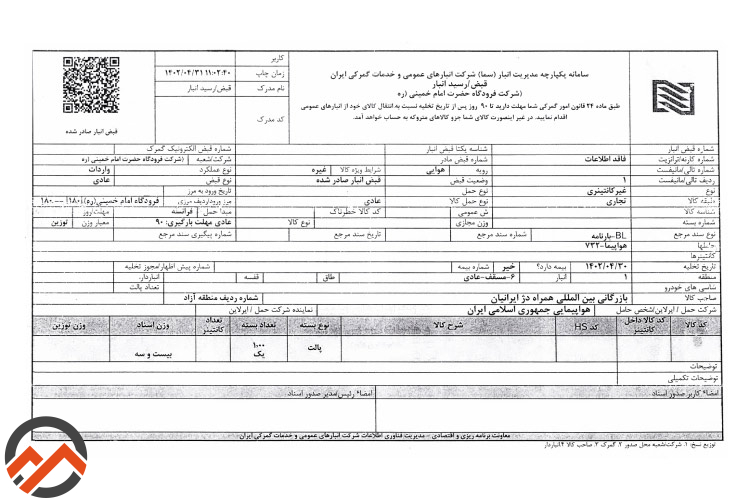 سامانه یکپارچه مدیریت انبار (سما) شرکت انبارهای عمومی و خدمات گمرکی ایران
قبض/رسید انبار
(شرکت فرودگاه حضرت امام خمینی (ره
طبق ماده ۲۴ قانون امور گمرکی شما مهلت دارید تا ۹۰ روز پس از تاریخ تخلیه نسبت به انتقال کالای خود از انبارهای عمومی
اقدام نمایید. در غیر اینصورت کالای شما جزو کالاهای متروکه به حساب خواهد آمد.
کاربر
زمان چاپ ۱۴۰۲/۰۴/۳۱ ۱۱:۰۲:۴۰
نام مدرک قبض/رسید انبار
کد مدرک
قبض انبار صادر شده
شماره قبض انبار شناسه یکتا قبض انبار شماره قبض الکترونیک گمرک
شماره کارنه/ترانزیت فاقد اطلاعات شماره قبض مادر شرکت/شعبه (شرکت فرودگاه امام خمینی (ره
شماره تالی/مانیفست رویه هوایی شرایط ویژه کالا غیره نوع عملکرد واردات
ردیف تالی/مانیفست ۱ وضعیت قبض قبض انبار صادر شده نوع قبض عادی
نوع غیرکانتینری نوع حمل تاریخ ورود به مرز
طبقه کالا تجاری نوع حمل کالا عادی مرز ورود/ردیف مرزی فرودگاه امام خمینی(ره)
شناسه کالا ش عمومی کد کالا خطرناک مبدا حمل فرانسه مهلت/روز
شماره بسته وزن مجازی نوع کالا عادی مهلت بارگیری: ۹۰ معیار وزن توزین
نوع سند مرجع BL-بارنامه شماره سند مرجع تاریخ سند مرجع شماره پیگیری سند مرجع
حاملها هواپیما-۷۳۲
کانتینرها
تاریخ تخلیه ۱۴۰۲/۰۴/۳۰ بیمه دارد؟ خیر شماره بیمه شماره پیش اظهار/مجوز تخلیه
منطقه ۱ انبار ۶-مسقف-عادی طاق قفسه انباردار
شاسی های خودرو تعداد پالت
صاحب کالا بازرگانی بین المللی همراه دژ ایرانیان شماره ردیف منطقه آزاد
شرکت حمل / ایرلاین/شخص حامل هواپیمایی جمهوری اسلامی ایران نماینده شرکت حمل / ایرلاین
کد کالا کد کالا داخل کانتینر کد HS شرح کالا نوع بسته تعداد بسته تعداد کانتینر وزن اسناد وزن توزین
پالت ۱.۰۰۰ یک بیست و سه
توضیحات
توضیحات تکمیلی
امضاء کاربر صدور اسناد امضاء رئیس/مدیر صدور اسناد
معاونت برنامه ریزی و اقتصادی - مدیریت فناوری اطلاعات شرکت انبارهای عمومی و خدمات گمرکی ایران
توزیع نسخ: ۱. شرکت/شعبه محل صدور ۲. گمرک ۳. صاحب کالا ۴.انباردار